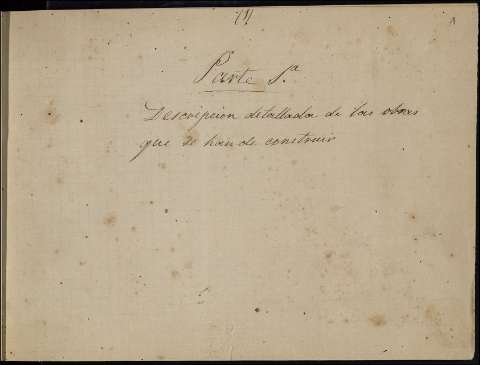 (1)
1
Parte 1.a
Descripcion detallada de las obras
que se han de construir